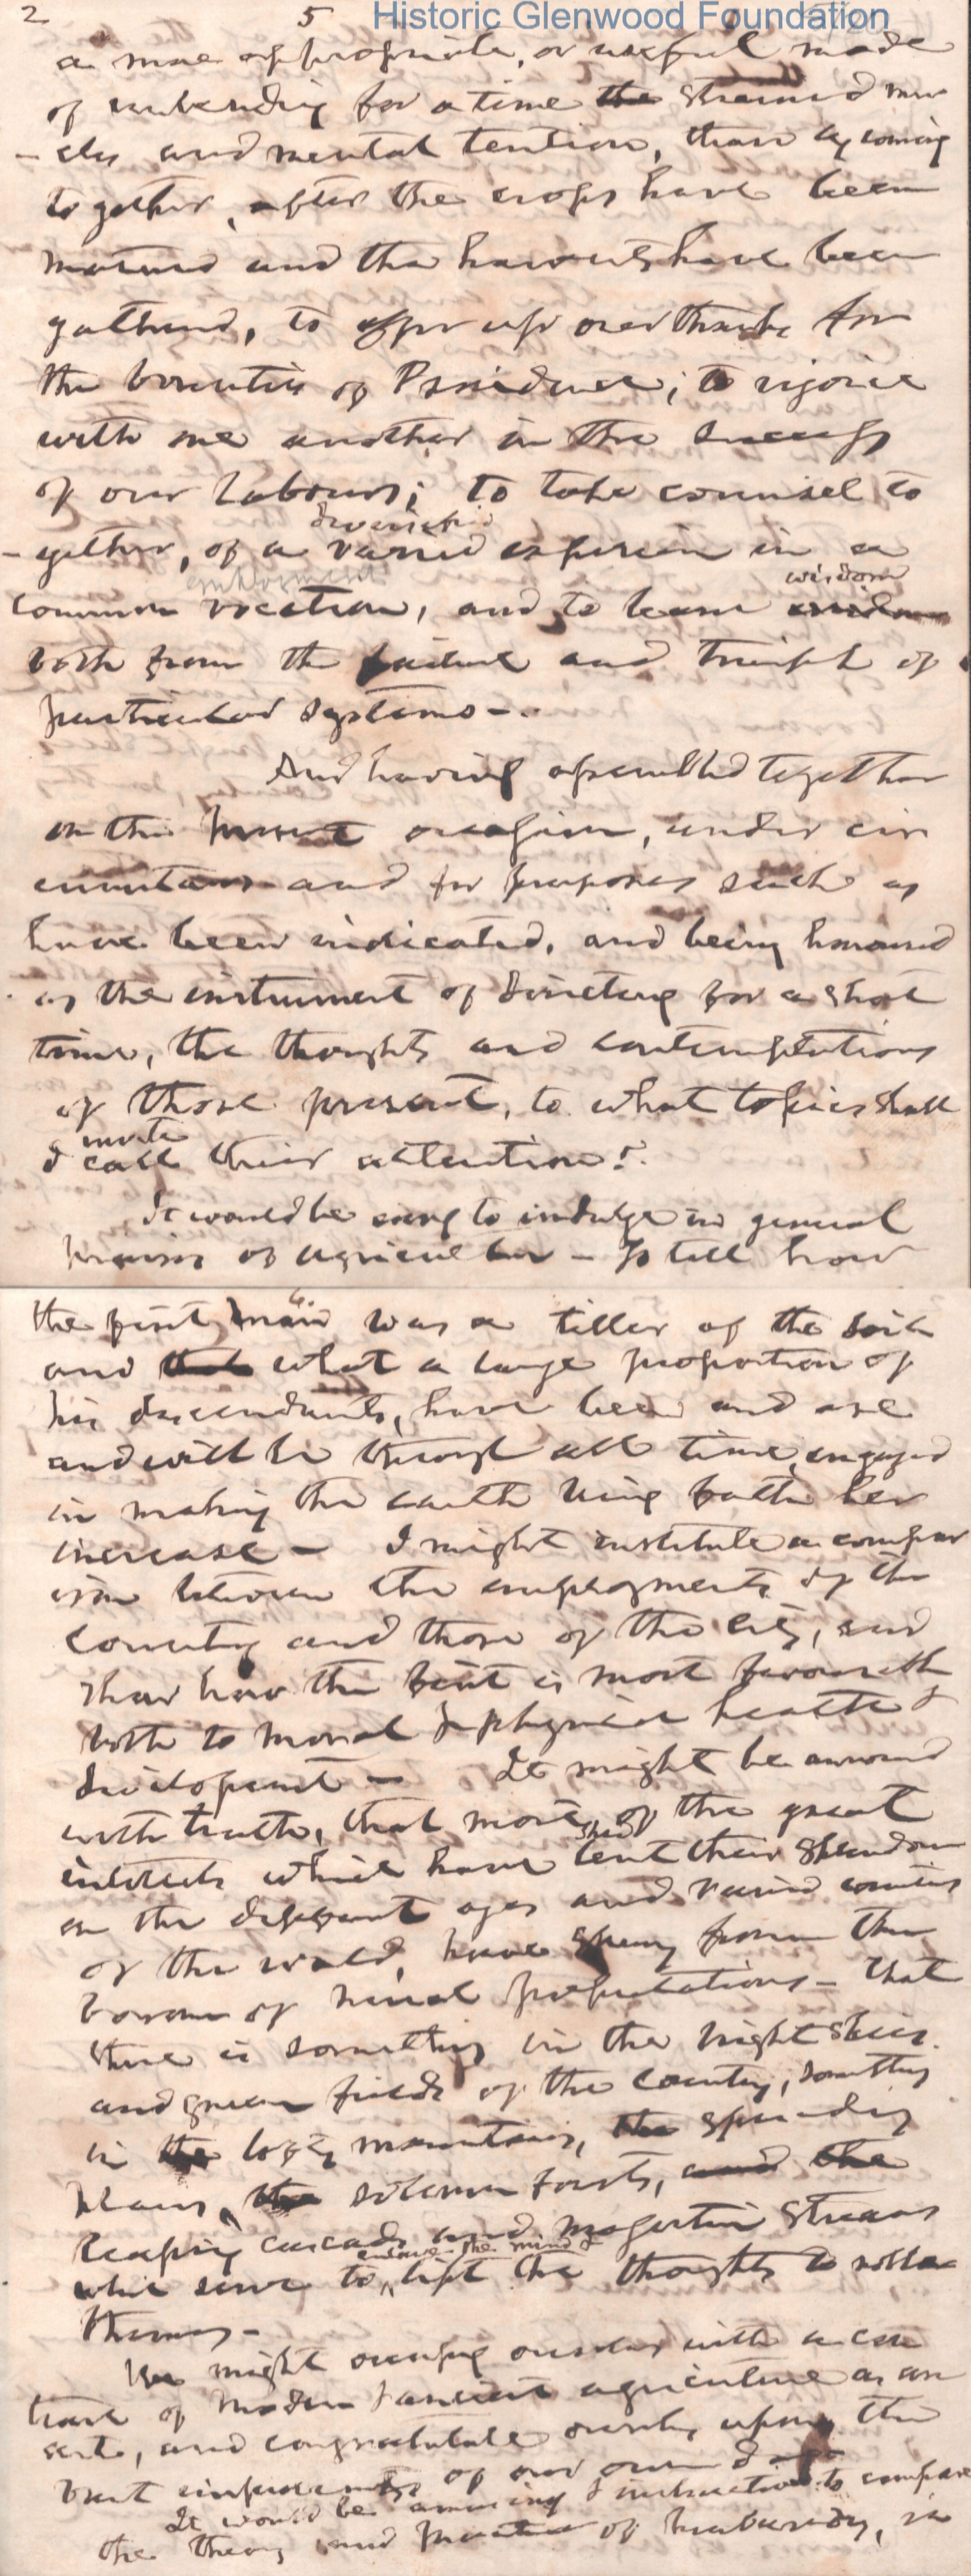 2 5 Historic Glenwood Foundation
a more appropriate, or useful mode
of unbending for a time the strained mus
- cles and mental tention, than by coming
together, after the crops have been
matured and the harvests have been
gathered, to offer up our thanks for
the bounties of Providence; to rejoice
with one another in the success
of our labours; to take counsel to
diversified
- gether, of a varied experience in a
employment wisdom
common vocation, and to learn wisdom
both from the failure and triumph of
particular systems -
And having assembled together
on the present occasion, under cir
cumstances and for purposes such as
have been indicated, and being honoured
as the instrument of directing for a short
time, the thoughts and contemplations
of those present, to what topics shall
invite
I call their attention?
It would be easy to indulge in general
praises of agriculture - To tell how
6
the first man was a tiller of the soil
and that what a large proportion of
his descendants, have been and are
and will be through all time, engaged
in making the earth bring forth her
increase - I might institute a compar
ison between the employments of the
country and those of the city, and
show how the first is most favourable
both to moral & physical health &
development - It might be averred
with truth, that most of the great
shed
intellects which have lent their splendour
on the different ages and varied countries
of the world, have sprung from the
bosom of rural populations - that
there is something in the bright skies
and green fields of the country, something
in the lofty mountains, the spreading
plains, the solemn forests, and the
leaping cascades and magestic streams
enlarge the mind &
which serve to lift the thoughts to nobler
themes -
We might occupy ourselves with a con
trast of modern & ancient agriculture as an
art, and congratulate ourselves upon the
vast improvements of our own day
It would be amusing & instructive to compare
the theory and practice of husbandry, in